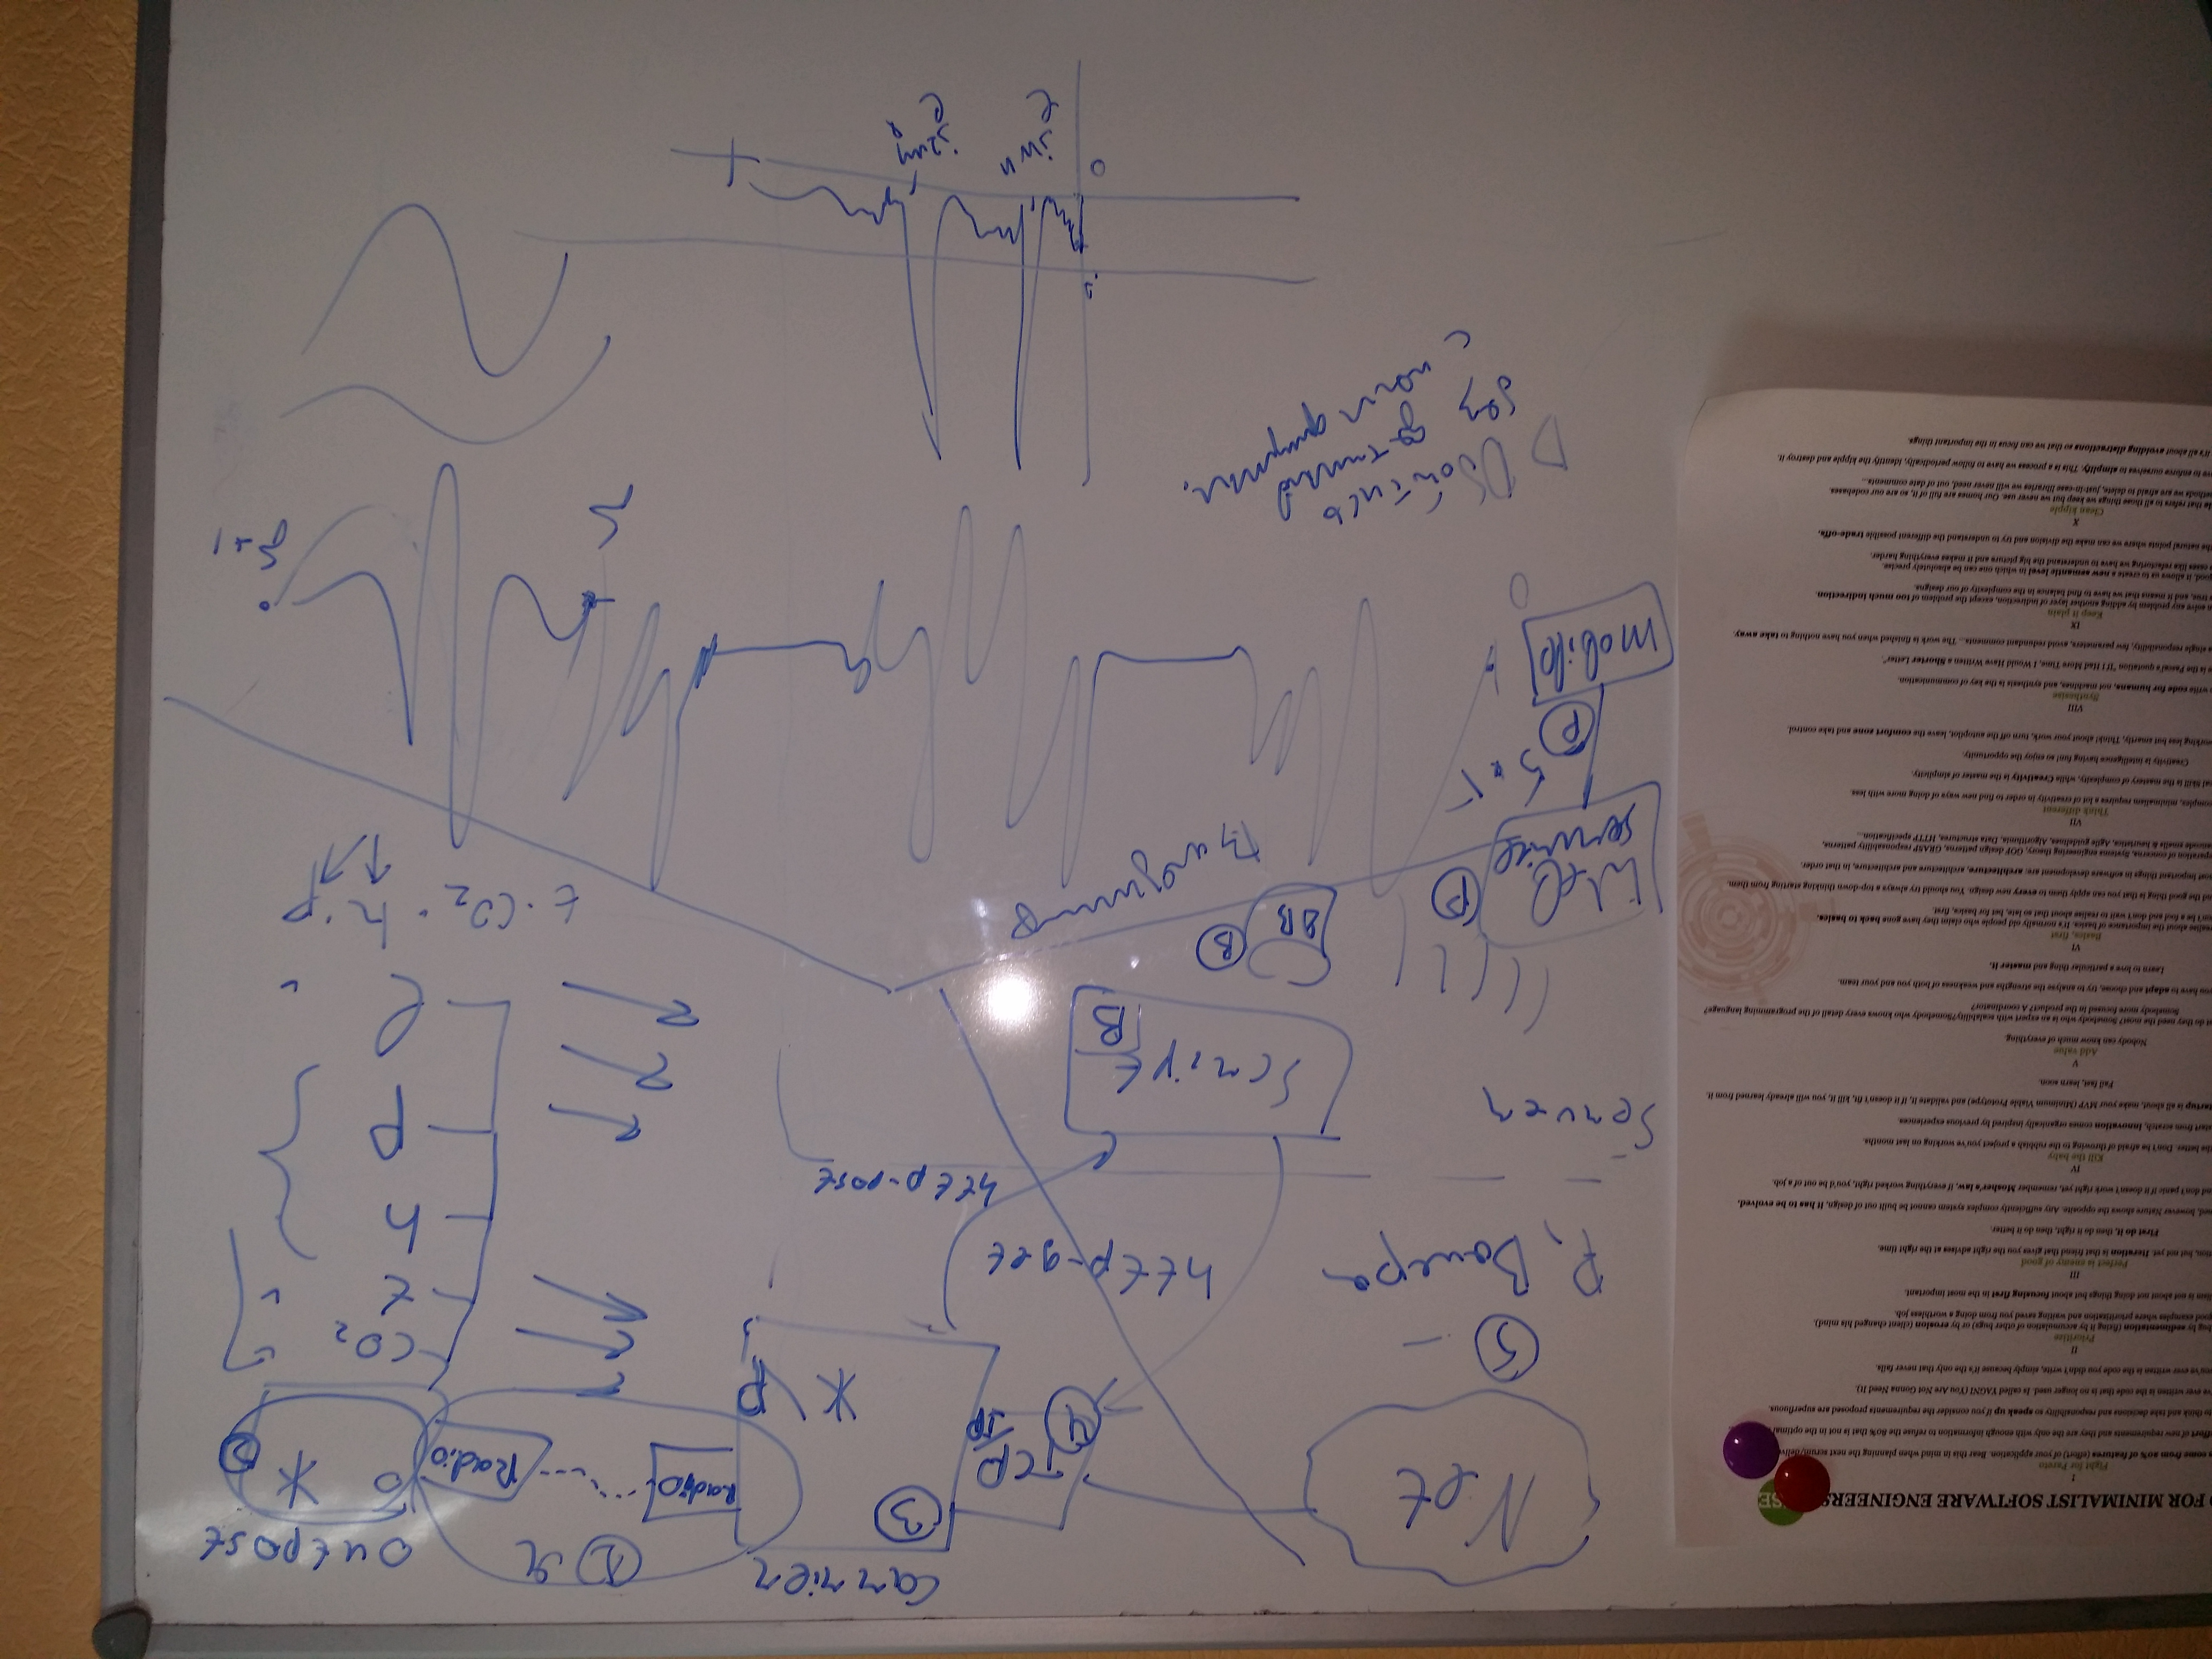 FOR MINIMALIST SOFTWARE ENGINEERS
I
Fight for Pareto
come from 80% of features (effort) of your application. Bear this in mind when planning the next scrum/
effort of new requirements and they are the only with enough information to refuse the 80% that is not in the
to think and take decisions and responsibility so speak up if you consider the requirements proposed are superfluous.
've ever written is the code that is no longer used. Is called YAGNI (You Are Not Gonna Need It).
you've ever written is the code you didn't write, simply because it's the only that never fails.
II
Prioritize
bug by sedimentation (fixing it by accumulation of other bugs) or by erosion (client changed his mind).
good examples where prioritization and waiting saved you from doing a worthless job.
is not about not doing things but about focusing first in the most important.
III
Perfect is enemy of good
but not yet. Iteration is that friend that gives you the right advises at the right time.
First do it, then do it right, then do it better.
however Nature shows the opposite. Any sufficiently complex system cannot be built out of design, it has to be evolved.
nd don't panic if it doesn't work right yet, remember Mosher's law, if everything worked right, you'd be out of a job.
IV
Kill the baby
the better. Don't be afraid of throwing to the rubbish a project you've working on last months.
start from scratch, innovation comes organically inspired by previous experiences.
startup is all about, make your MVP (Minimum Viable Prototype) and validate it, if it doesn't fit, kill it, you will already learned from it.
Fail fast, learn soon.
V
Add value
Nobody can know much of everything.
do they need the most? Somebody who is an expert with scalability? Somebody who knows every detail of the programming language?
Somebody more focused in the product? A coordinator?
you have to adapt and choose, try to analyse the strengths and weakness of both you and your team.
Learn to love a particular thing and master it.
VI
Basics, first
realise about the importance of basics. It's normally old people who claim they have gone back to basics.
on't be a fool and don't wait to realise about that so late, bet for basics, first.
nd the good thing is that you can apply them to every new design. You should try always a top-down thinking starting from them.
most important things in software development are: architecture, architecture and architecture, in that order.
separation of concerns, Systems engineering theory, GOF design patterns, GRASP responsability patterns,
smells & heuristics, Agile guidelines, Algorithmia, Data structures, HTTP specification...
VII
Think different
complex, minimalism requires a lot of creativity in order to find new ways of doing more with less.
Skill is the mastery of complexity, while Creativity is the master of simplicity.
Creativity is intelligence having fun! so enjoy the opportunity.
working less but smartly, Think! about your work, turn off the autopilot, leave the comfort zone and take control.
VIII
Synthesise
write code for humans, not machines, and synthesis is the key of communication.
is the Pascal's quotation "If I Had More Time, I Would Have Written a Shorter Letter".
a single responsibility, few parameters, avoid redundant comments... The work is finished when you have nothing to take away.
IX
Keep it plain
solve any problem by adding another layer of indirection, except the problem of too much indirection.
true, and it means that we have to find balance in the complexity of our designs.
good, it allows us to create a new semantic level in which one can be absolutely precise.
cases like refactoring we have to understand the big picture and it makes everything harder.
the natural points where we can make the division and try to understand the different possible trade-offs.
X
Clean kipple
that refers to all those things we keep but we never use. Our homes are full of it, so are our codebases.
methods we are afraid to delete, just-in-case libraries we will never need, out of date comments...
to enforce ourselves to simplify. This is a process we have to follow periodically, identify the kipple and destroy it.
it's all about avoiding distractions so that we can focus in the important things.
Net
Carrier
outpost
TCP
/IP
4
3
* \ P
Radio
1 Я
Radio
*
2
5 -
Р, Валера
http-get
http-post
CO2
t
h
p
l
Server
Script
B
DB B
Web
service
P
P
mobile
t · CO2 · h · p
S
S+1
Обойтись
без
с
0
e^jwn